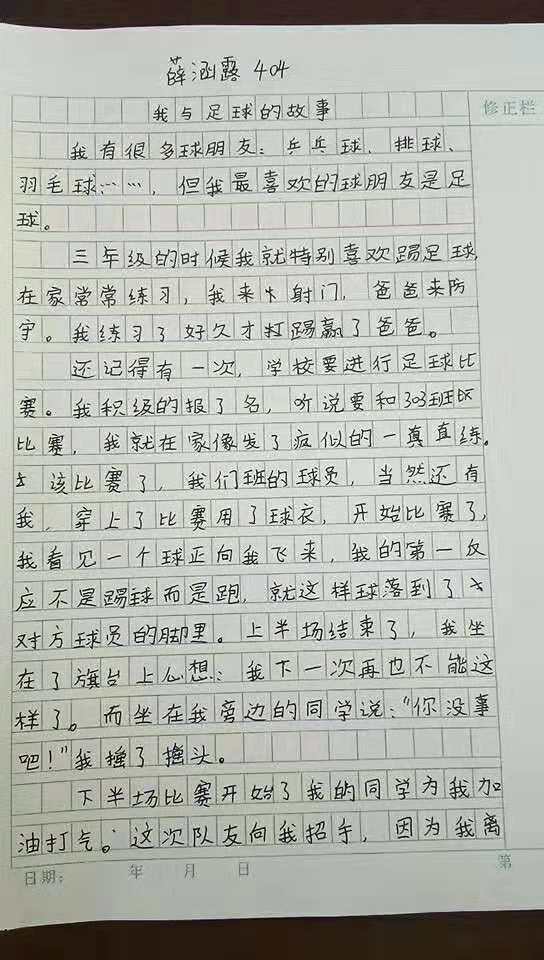 薛涵露 404
修正栏
我与足球的故事
我有很多球朋友:乒乓球、排球、
羽毛球……,但我最喜欢的球朋友是足
球。
三年级的时候我就特别喜欢踢足球,
在家常常练习,我来射门,爸爸来防
守。我练习了好久才打踢赢了爸爸。
还记得有一次,学校要进行足球比
赛。我积级的报了名,听说要和303班
比赛,我就在家像发了疯似的一真直练。
该比赛了,我们班的球员,当然还有
我,穿上了比赛用了球衣,开始比赛了,
我看见一个球正向我飞来,我的第一反
应不是踢球而是跑,就这样球落到了
对方球员的脚里。上半场结束了,我坐
在了旗台上心想:我下一次再也不能这
样了。而坐在我旁边的同学说:“你没事
吧!”我摇了摇头。
下半场比赛开始了我的同学为我加
油打气。这次队友向我招手,因为我离
日期: 年 月 日
第